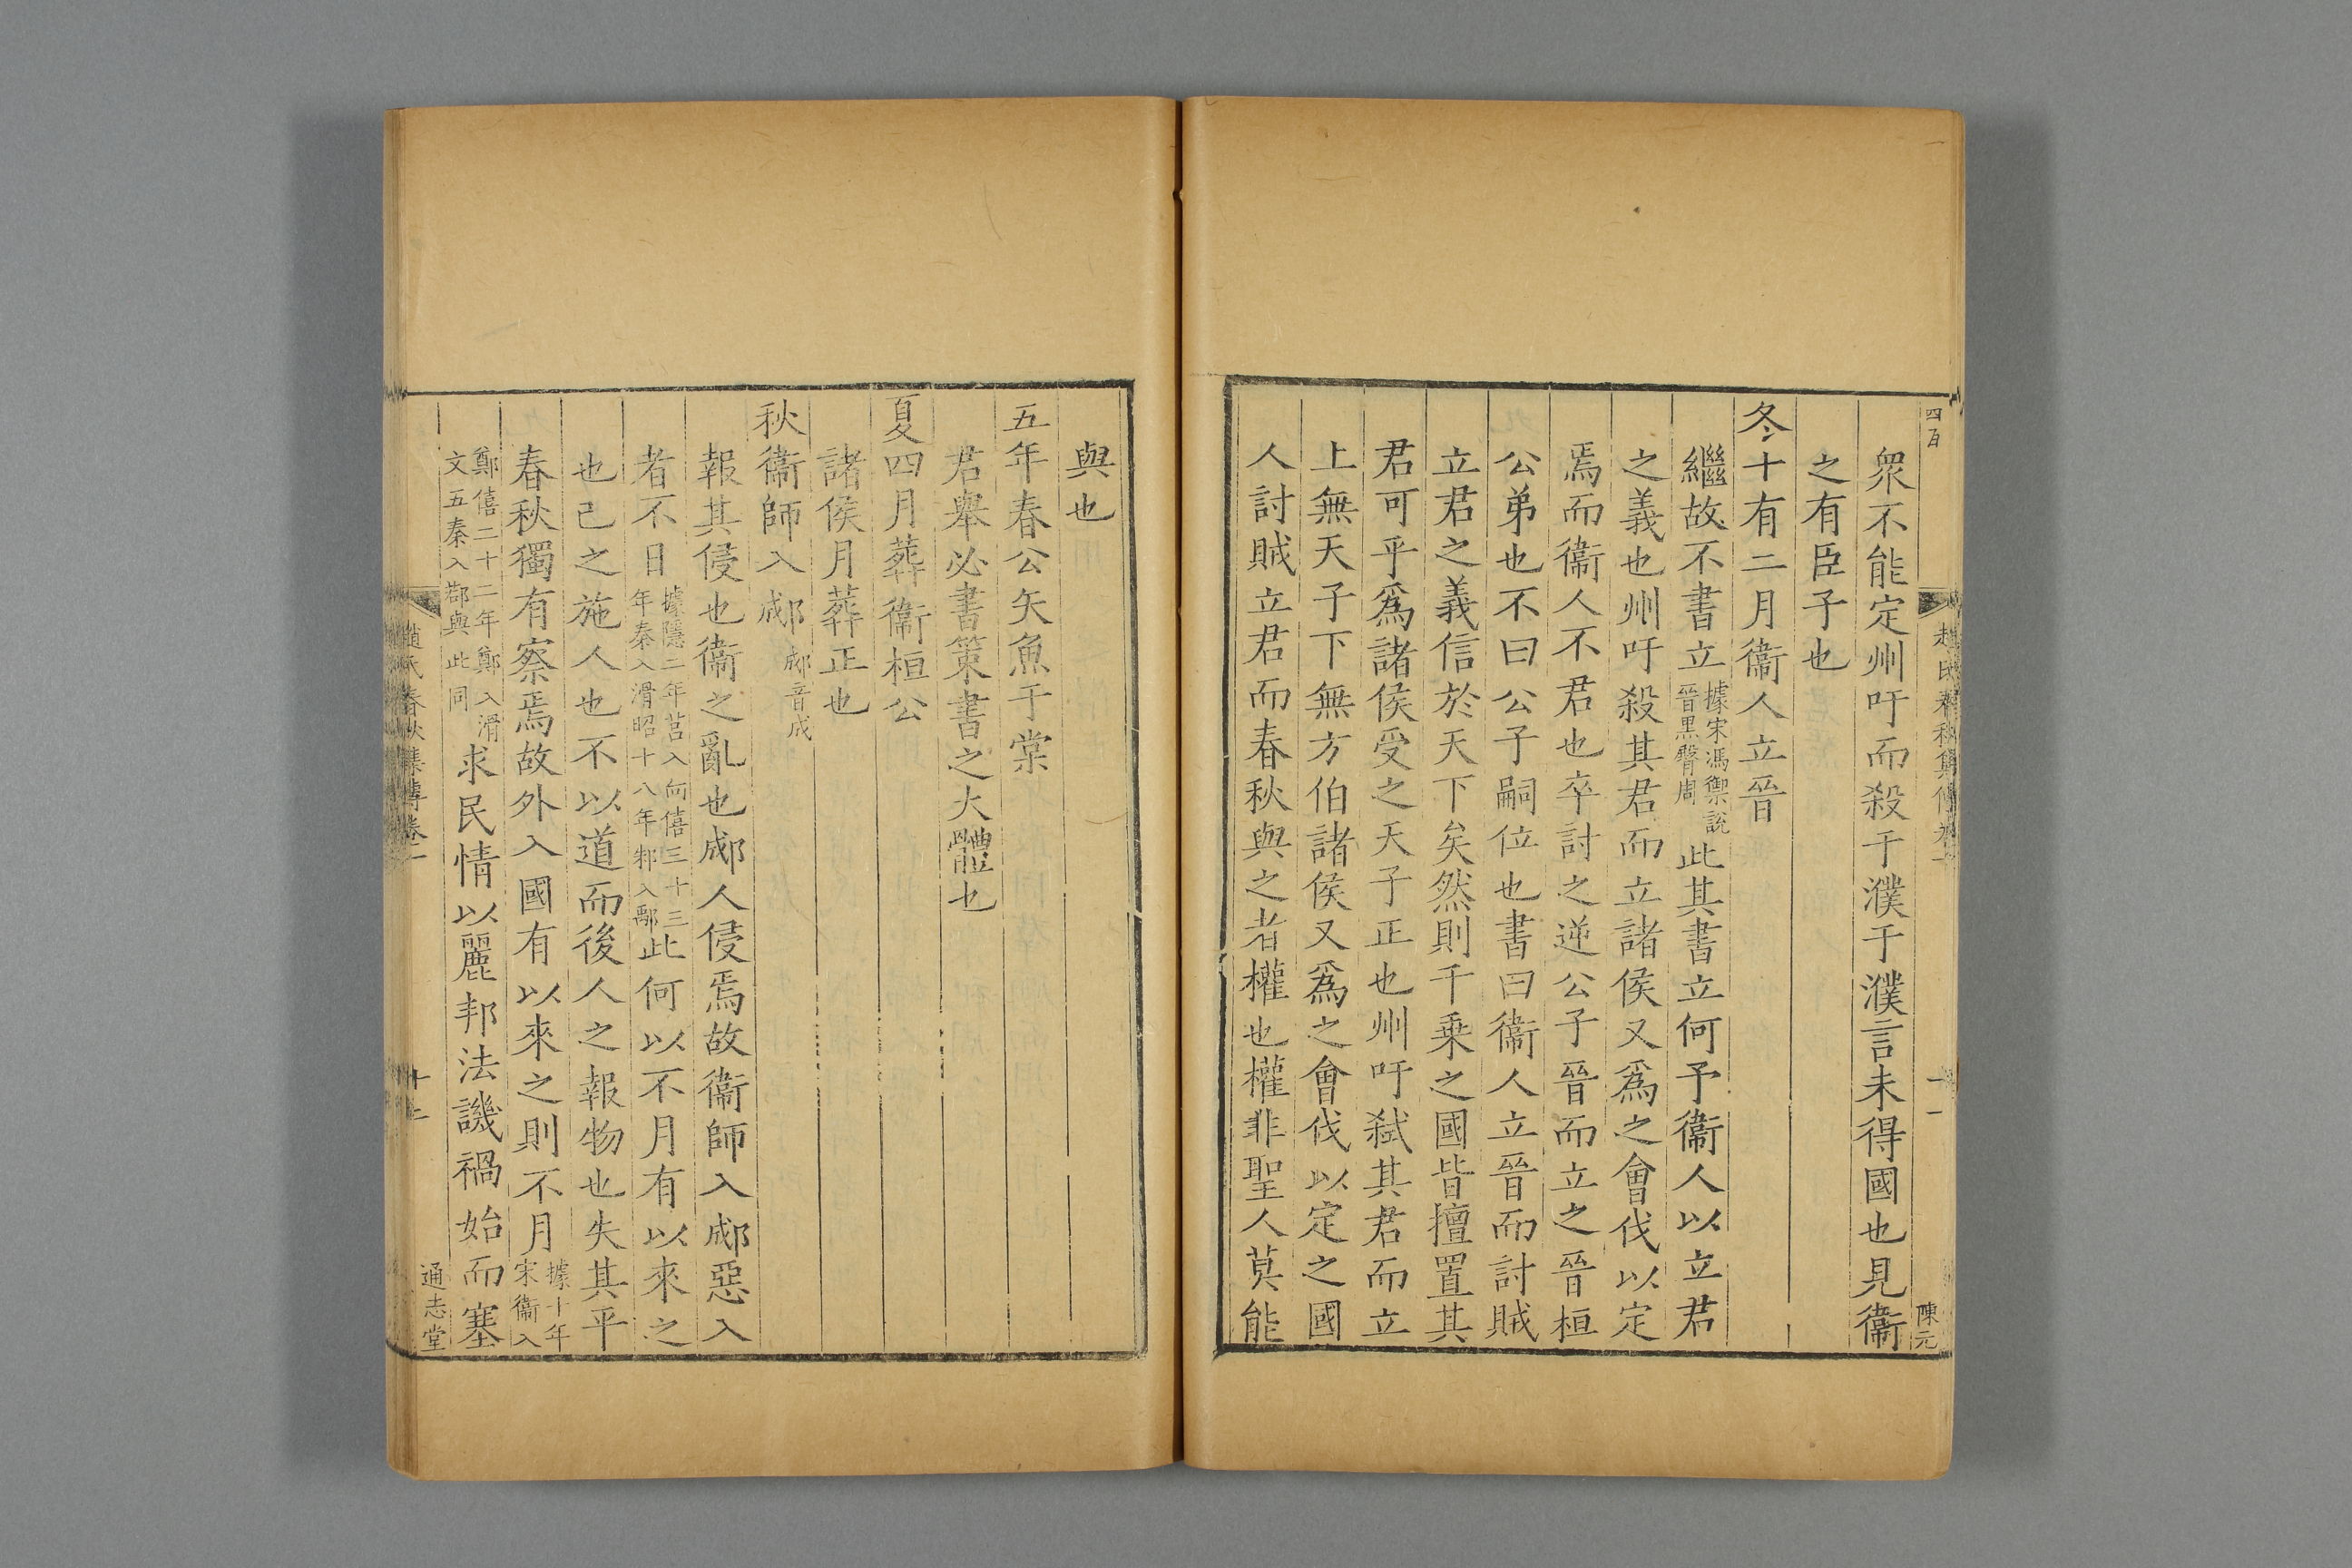 四百
趙氏春秋集傳卷一
十一
陳元
衆不能定州吁而殺于濮于濮言未得國也見衞
之有臣子也
冬十有二月衞人立晉
繼故不書立據宋馮禦說晉黑臀周此其書立何予衞人以立君
之義也州吁殺其君而立諸侯又爲之會伐以定
焉而衞人不君也卒討之逆公子晉而立之晉桓
公弟也不曰公子嗣位也書曰衞人立晉而討賊
立君之義信於天下矣然則千乗之國皆擅置其
君可乎爲諸侯受之天子正也州吁弑其君而立
上無天子下無方伯諸侯又爲之會伐以定之國
人討賊立君而春秋與之者權也權非聖人莫能
與也
五年春公矢魚于棠
君舉必書策書之大體也
夏四月葬衞桓公
諸侯月葬正也
秋衞師入郕郕音成
報其侵也衞之亂也郕人侵焉故衞師入郕惡入
者不日據隱二年莒入向僖三十三年秦入滑昭十八年邾入鄅此何以不月有以來之
也己之施人也不以道而後人之報物也失其平
春秋獨有察焉故外入國有以來之則不月據十年宋衞入
鄭僖二十二年鄭入滑文五秦入鄀與此同求民情以麗邦法譏禍始而塞
趙氏春秋集傳卷一
十二
通志堂